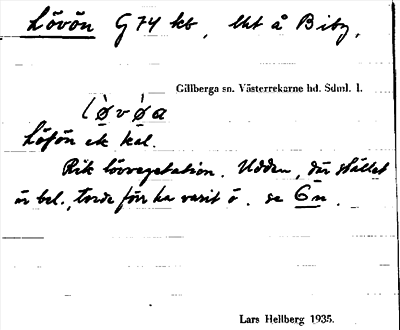 Lövön G 74 kb, lht å Biby,
Gillberga sn. Västerrekarne hd. Sdml. l.
lø̀vø̀a
Löfön ek kal.
Rik lövvegetation. Udden, där stället
är bel., torde förr ha varit ö. se 6n.
Lars Hellberg 1935.